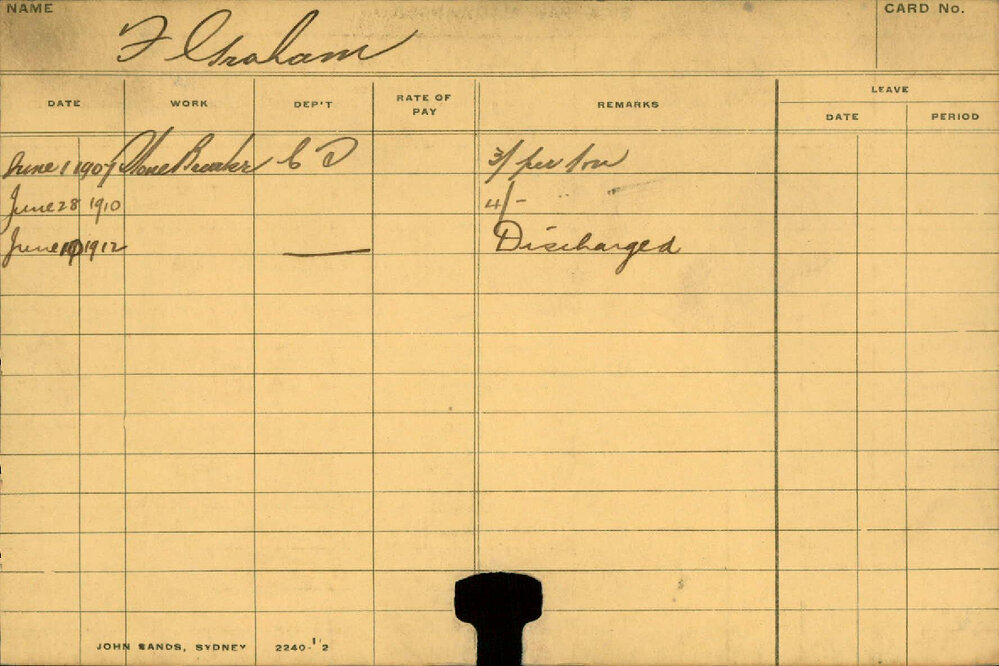 NAME F Graham CARD No.
DATE WORK DEP'T RATE OF PAY REMARKS LEAVE
DATE PERIOD
June 1 1907 Stone Breaker C D 3/ per ton
June 28 1910 4/-
June 1912 — Discharged
JOHN SANDS, SYDNEY 2240-1'2